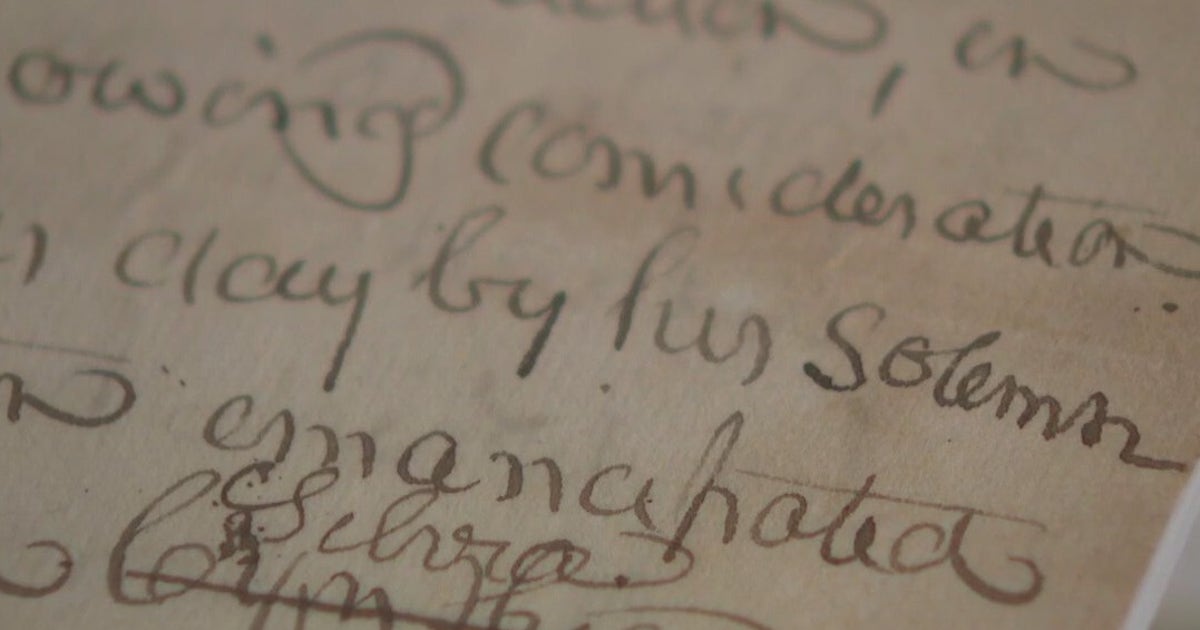 , in
owing consideration
day by his Solemn
emancipated
Silvia.